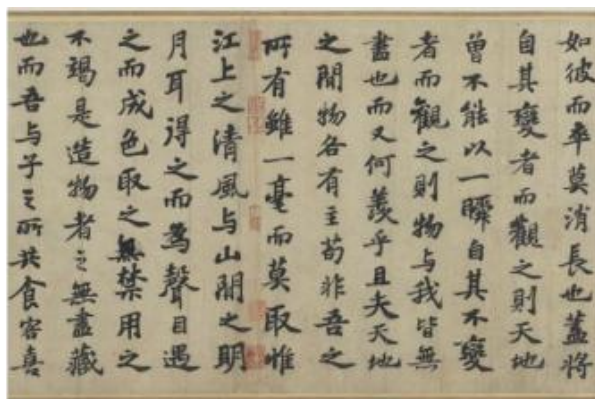 如彼而卒莫消長也蓋將
自其變者而觀之則天地
曾不能以一瞬自其不變
者而觀之則物与我皆無
盡也而又何羨乎且夫天地
之間物各有主苟非吾之
所有雖一毫而莫取惟
江上之清風与山間之明
月耳得之而為聲目遇
之而成色取之無禁用之
不竭是造物者之無盡藏
也而吾与子之所共食客喜